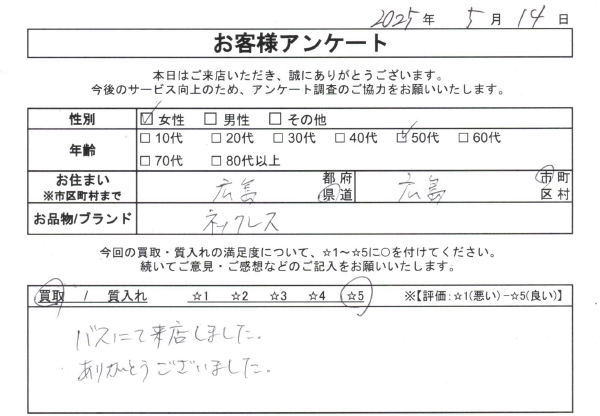 2025年 5月 14日
お客様アンケート
本日はご来店いただき、誠にありがとうございます。
今後のサービス向上のため、アンケート調査のご協力をお願いいたします。
性別 ☑女性 □男性 □その他
年齢 □10代 □20代 □30代 □40代 ☑50代 □60代
□70代 □80代以上
お住まい ※市区町村まで 広島 都府県道 広島 市町区村
お品物/ブランド ネックレス
今回の買取・質入れの満足度について、☆1～☆5に○を付けてください。
続いてご意見・ご感想などのご記入をお願いいたします。
買取 / 質入れ ☆1 ☆2 ☆3 ☆4 ☆5 ※【評価:☆1(悪い)-☆5(良い)】
バスにて来店しました。
ありがとうございました。